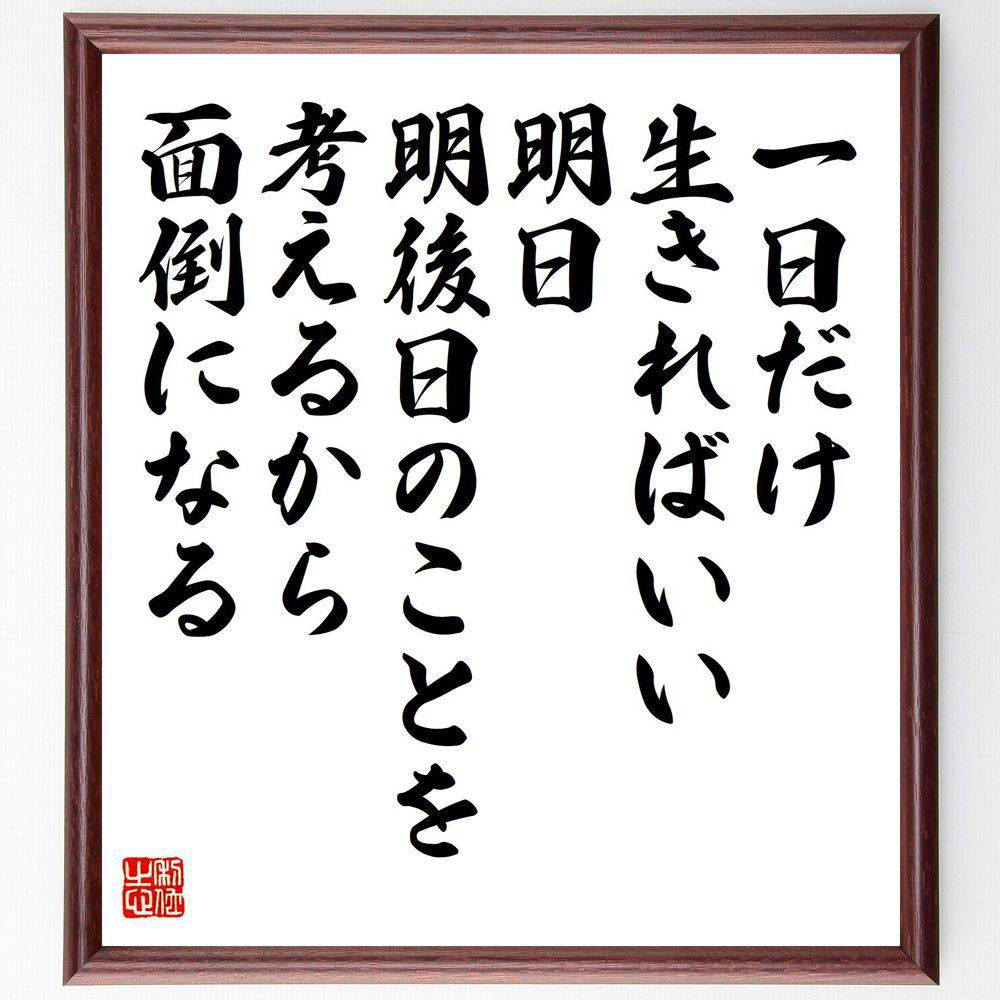 一日だけ
生きればいい
明日
明後日のことを
考えるから
面倒になる